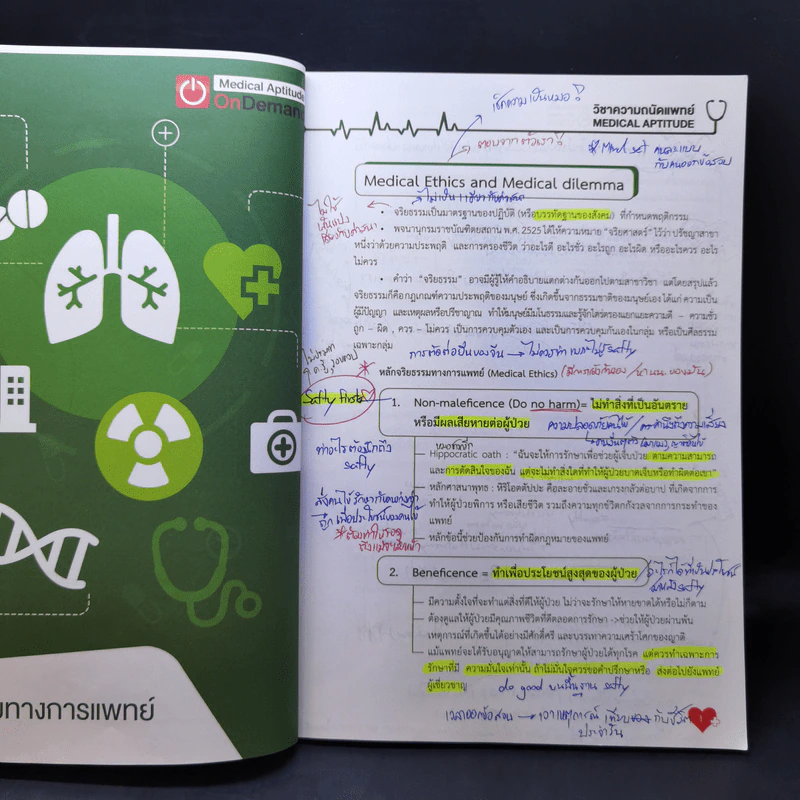 Medical Aptitude
OnDeman
มทางการแพทย์
เช็คความเป็นหมอ?
วิชาความถนัดแพทย์
MEDICAL APTITUDE
ตอบจากตัวเรา?
* Mind set คนละแบบ
กับคนออกข้อสอบ
Medical Ethics and Medical dilemma
• จริยธรรมเป็นมาตรฐานของปฏิบัติ (หรือบรรทัดฐานของสังคม) ที่กำหนดพฤติกรรม
• พจนานุกรมราชบัณฑิตยสถาน พ.ศ. 2525 ได้ให้ความหมาย "จริยศาสตร์" ไว้ว่า ปรัชญาสาขา
หนึ่งว่าด้วยความประพฤติ และการครองชีวิต ว่าอะไรดี อะไรชั่ว อะไรถูก อะไรผิด หรืออะไรควร อะไร
ไม่ควร
• คำว่า "จริยธรรม" อาจมีผู้รู้ให้คำอธิบายแตกต่างกันออกไปตามสาขาวิชา แต่โดยสรุปแล้ว
จริยธรรมก็คือกฎเกณฑ์ความประพฤติของมนุษย์ ซึ่งเกิดขึ้นจากธรรมชาติของมนุษย์เอง ได้แก่ ความเป็น
ผู้มีปัญญา และเหตุผลหรือปรีชาญาณ ทำให้มนุษย์มีมโนธรรมและรู้จักไตร่ตรองแยกแยะความดี - ความชั่ว
ถูก - ผิด , ควร - ไม่ควร เป็นการควบคุมตัวเอง และเป็นการควบคุมกันเองในกลุ่ม หรือเป็นศีลธรรม
เฉพาะกลุ่ม
การตัดต่อปืนของจีน → ไม่ควรทำ เพราะไม่รู้ safty
หลักจริยธรรมทางการแพทย์ (Medical Ethics)
Safty first
1. Non-maleficence (Do no harm)= ไม่ทำสิ่งที่เป็นอันตราย
หรือมีผลเสียหายต่อผู้ป่วย
ความปลอดภัยคนไข้
ทำอะไรต้องนึกถึง
safty
Hippocratic oath : "ฉันจะให้การรักษาเพื่อช่วยผู้เจ็บป่วย ตามความสามารถ
และการตัดสินใจของฉัน แต่จะไม่ทำสิ่งใดที่ทำให้ผู้ป่วยบาดเจ็บหรือทำผิดต่อเขา"
หลักศาสนาพุทธ : หิริโอตตัปปะ คือละอายชั่วและเกรงกลัวต่อบาป ที่เกิดจากการ
ทำให้ผู้ป่วยพิการ หรือเสียชีวิต รวมถึงความทุกข์ชีวิตกังวลจากการกระทำของ
แพทย์
หลักข้อนี้ช่วยป้องกันการทำผิดกฎหมายของแพทย์
2. Beneficence = ทำเพื่อประโยชน์สูงสุดของผู้ป่วย
มีความตั้งใจที่จะทำแต่สิ่งที่ดีให้ผู้ป่วย ไม่ว่าจะรักษาให้หายขาดได้หรือไม่ก็ตาม
ต้องดูแลให้ผู้ป่วยมีคุณภาพชีวิตที่ดีตลอดการรักษา ->ช่วยให้ผู้ป่วยผ่านพ้น
เหตุการณ์ที่เกิดขึ้นได้อย่างมีศักดิ์ศรี และบรรเทาความเศร้าโศกของญาติ
แม้แพทย์จะได้รับอนุญาตให้สามารถรักษาผู้ป่วยได้ทุกโรค แต่ควรทำเฉพาะการ
รักษาที่มี ความมั่นใจเท่านั้น ถ้าไม่มั่นใจควรขอคำปรึกษาหรือ ส่งต่อไปยังแพทย์
ผู้เชี่ยวชาญ
do good บนพื้นฐาน safty
เวลาออกข้อสอบ → เอาเหตุการณ์
ประจำวัน
1